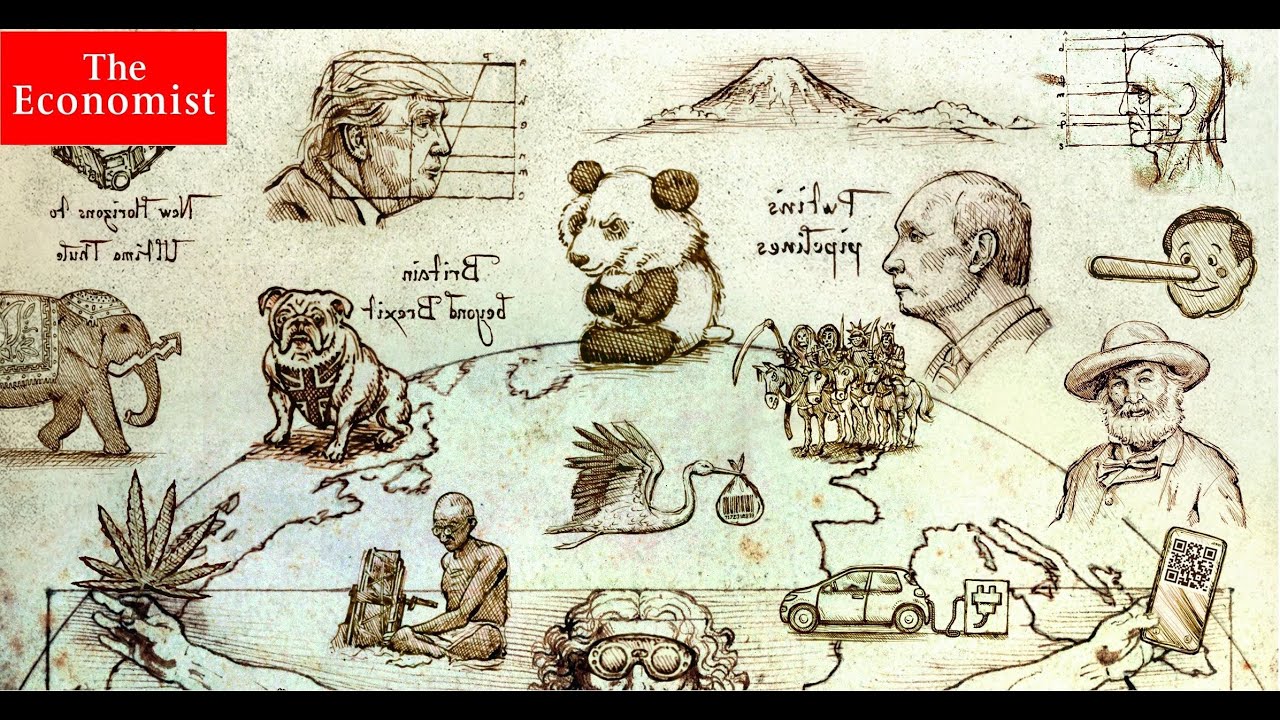 The
Economist
Putin's
pipelines
New Horizons to
Ultima Thule
Britain
beyond Brexit